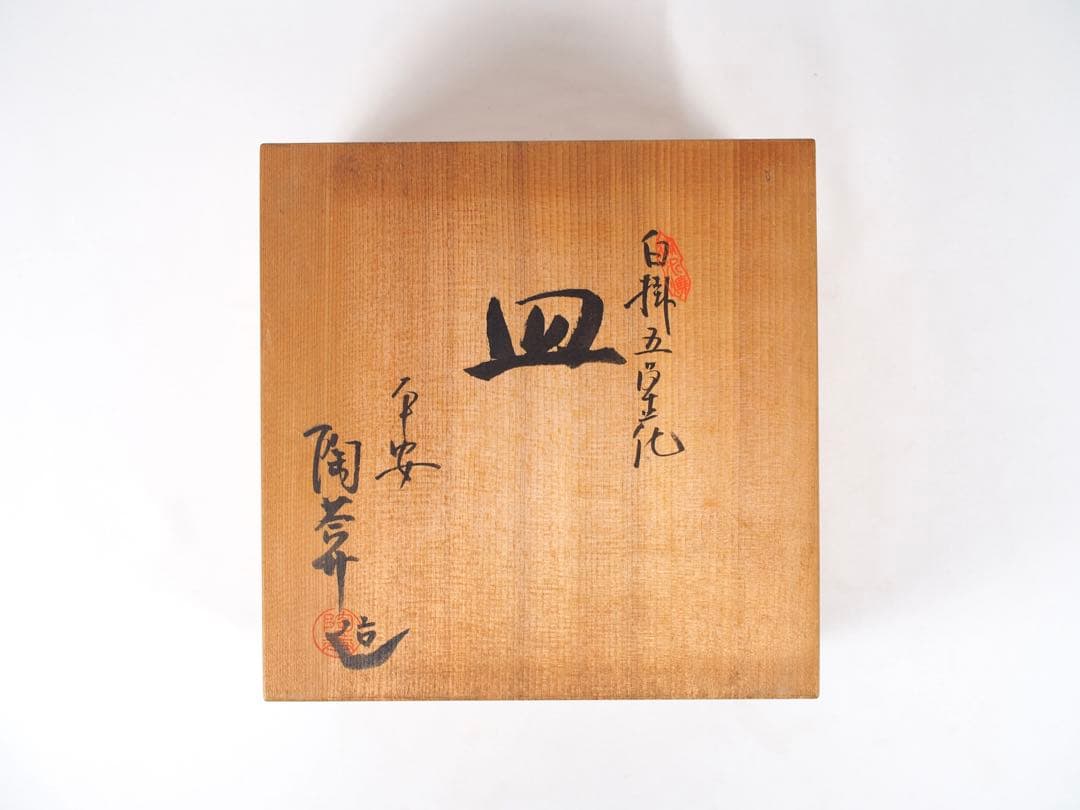 白掛五草花
皿
平安
陶葊造